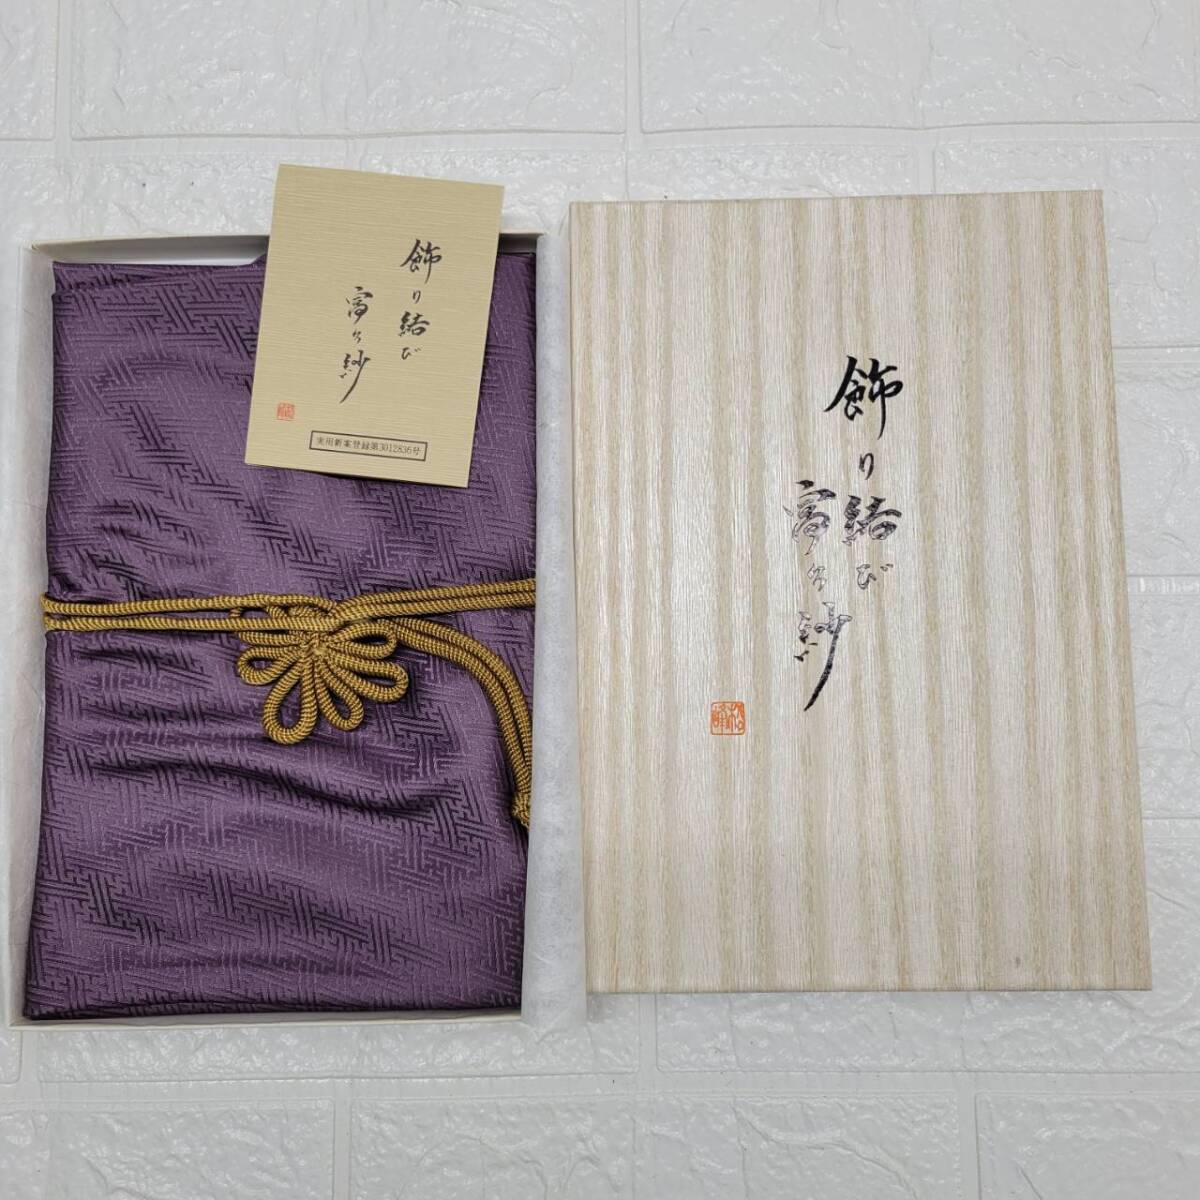 飾り結び
富久紗
実用新案登録第3012836号
飾り結び
富久紗